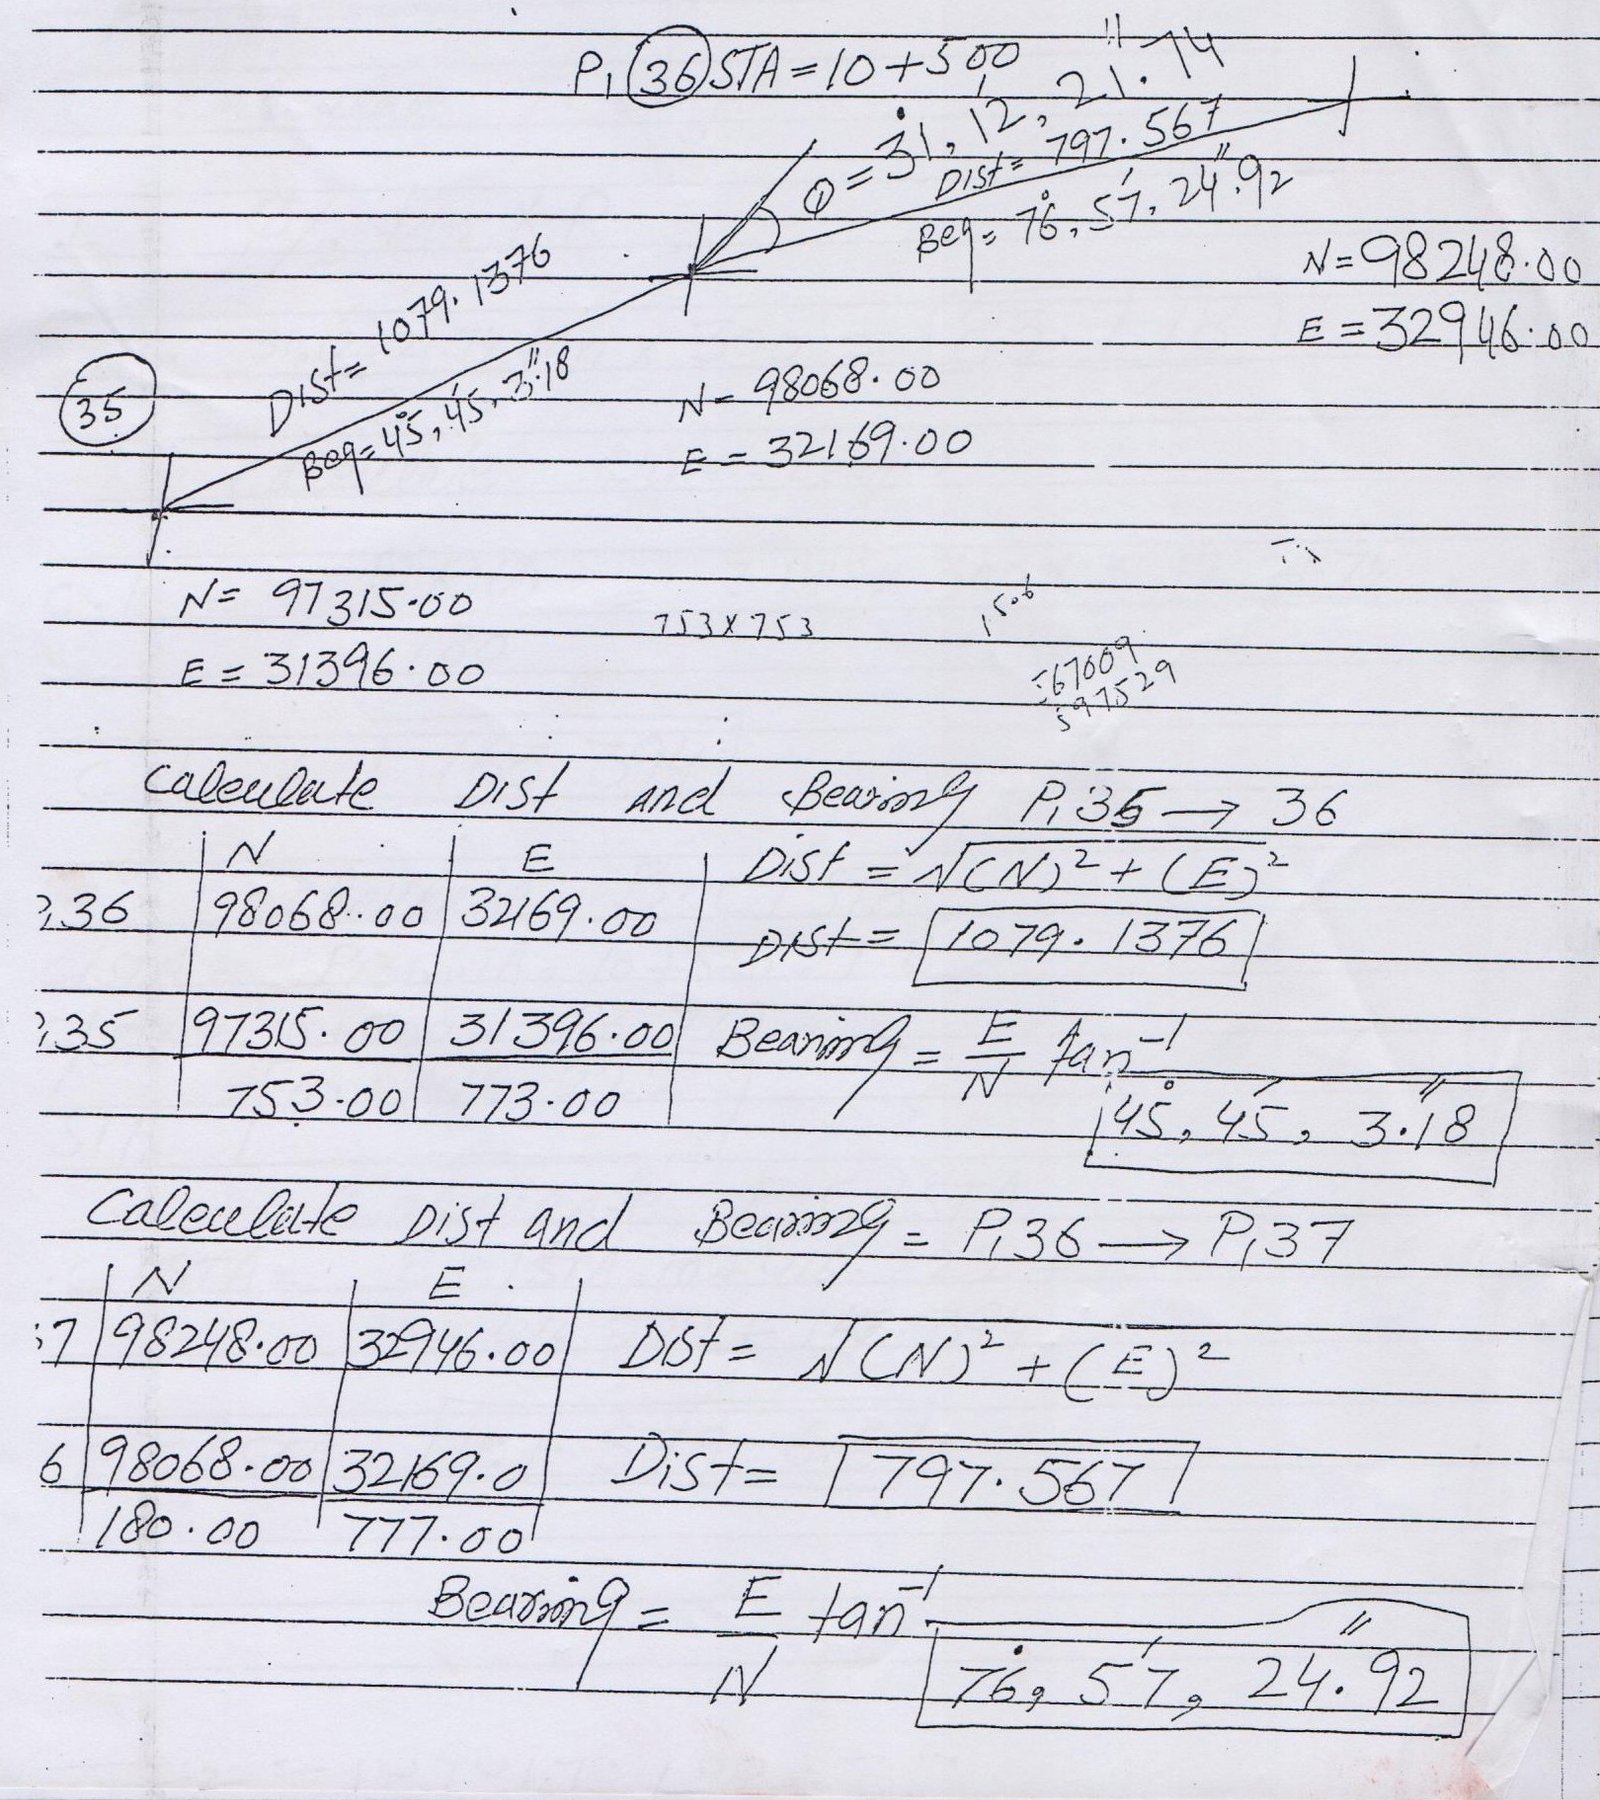 P, 36 STA = 10+500
Φ = 31°, 12', 21.74"
Dist = 797.567
Beg = 76°, 57', 24".92
N = 98248.00
E = 32946.00
Dist = 1079.1376
Beg = 45°, 45', 3".18
35
N = 98068.00
E = 32169.00
N = 97315.00
E = 31396.00
753 x 753
1506
567009
597529
Calculate Dist and Bearing P,35 → 36
N E Dist = √(N)² + (E)²
36 98068.00 32169.00
Dist = 1079.1376
35 97315.00 31396.00 Bearing = E/N tan⁻¹
753.00 773.00 45°, 45', 3.18"
Calculate Dist and Bearing = P,36 → P,37
N E
7 98248.00 32946.00 Dist = √(N)² + (E)²
6 98068.00 32169.0 Dist = 797.567
180.00 777.00
Bearing = E/N tan⁻¹
76°, 57', 24.92"